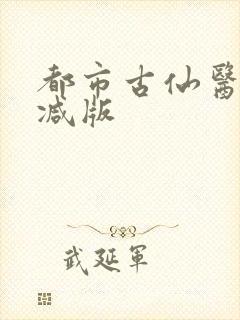 都市古仙醫
减版
武延軍